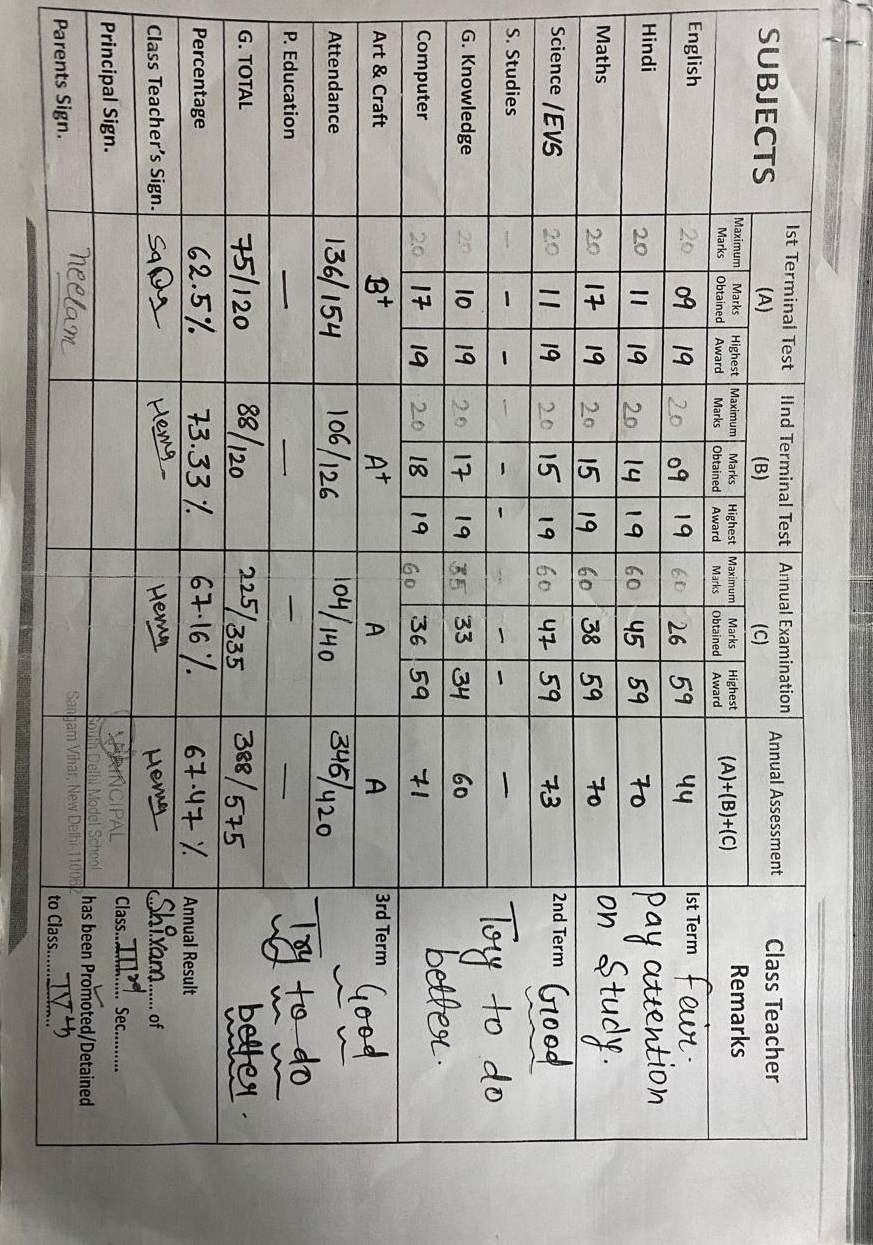 SUBJECTS Ist Terminal Test (A) IInd Terminal Test (B) Annual Examination (C) Annual Assessment (A)+(B)+(C) Class Teacher Remarks
Maximum Marks Marks Obtained Highest Award Maximum Marks Marks Obtained Highest Award Maximum Marks Marks Obtained Highest Award
English 20 09 19 20 09 19 60 26 59 44
Hindi 20 11 19 20 14 19 60 45 59 70
Maths 20 17 19 20 15 19 60 38 59 70
Science /EVS 20 11 19 20 15 19 60 47 59 73
S. Studies - - - - - - - - - -
G. Knowledge 20 10 19 20 17 19 35 33 34 60
Computer 20 17 19 20 18 19 60 36 59 71
Art & Craft B+ A+ A A
Attendance 136/154 106/126 104/140 346/420
P. Education - - - -
G. TOTAL 75/120 88/120 225/335 388/575
Percentage 62.5% 73.33% 67.16% 67.47%
Class Teacher's Sign. Hema Hema Hema
Principal Sign. PRINCIPAL
South Delhi Model School
Sangam Vihar, New Delhi-110062
Parents Sign. neelam
1st Term Fair.
Pay attention
on Study.
2nd Term Good
Try to do
better.
3rd Term Good
Try to do
better.
Annual Result
Shivam of
Class IIIrd Sec.
has been Promoted/Detained
to Class IVth